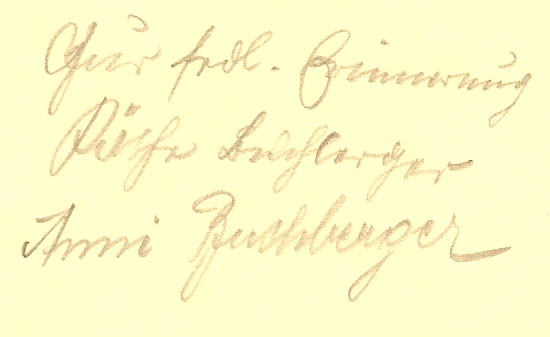 Zur frdl. Erinnerung
Käthe Buchberger
Anni Buchberger